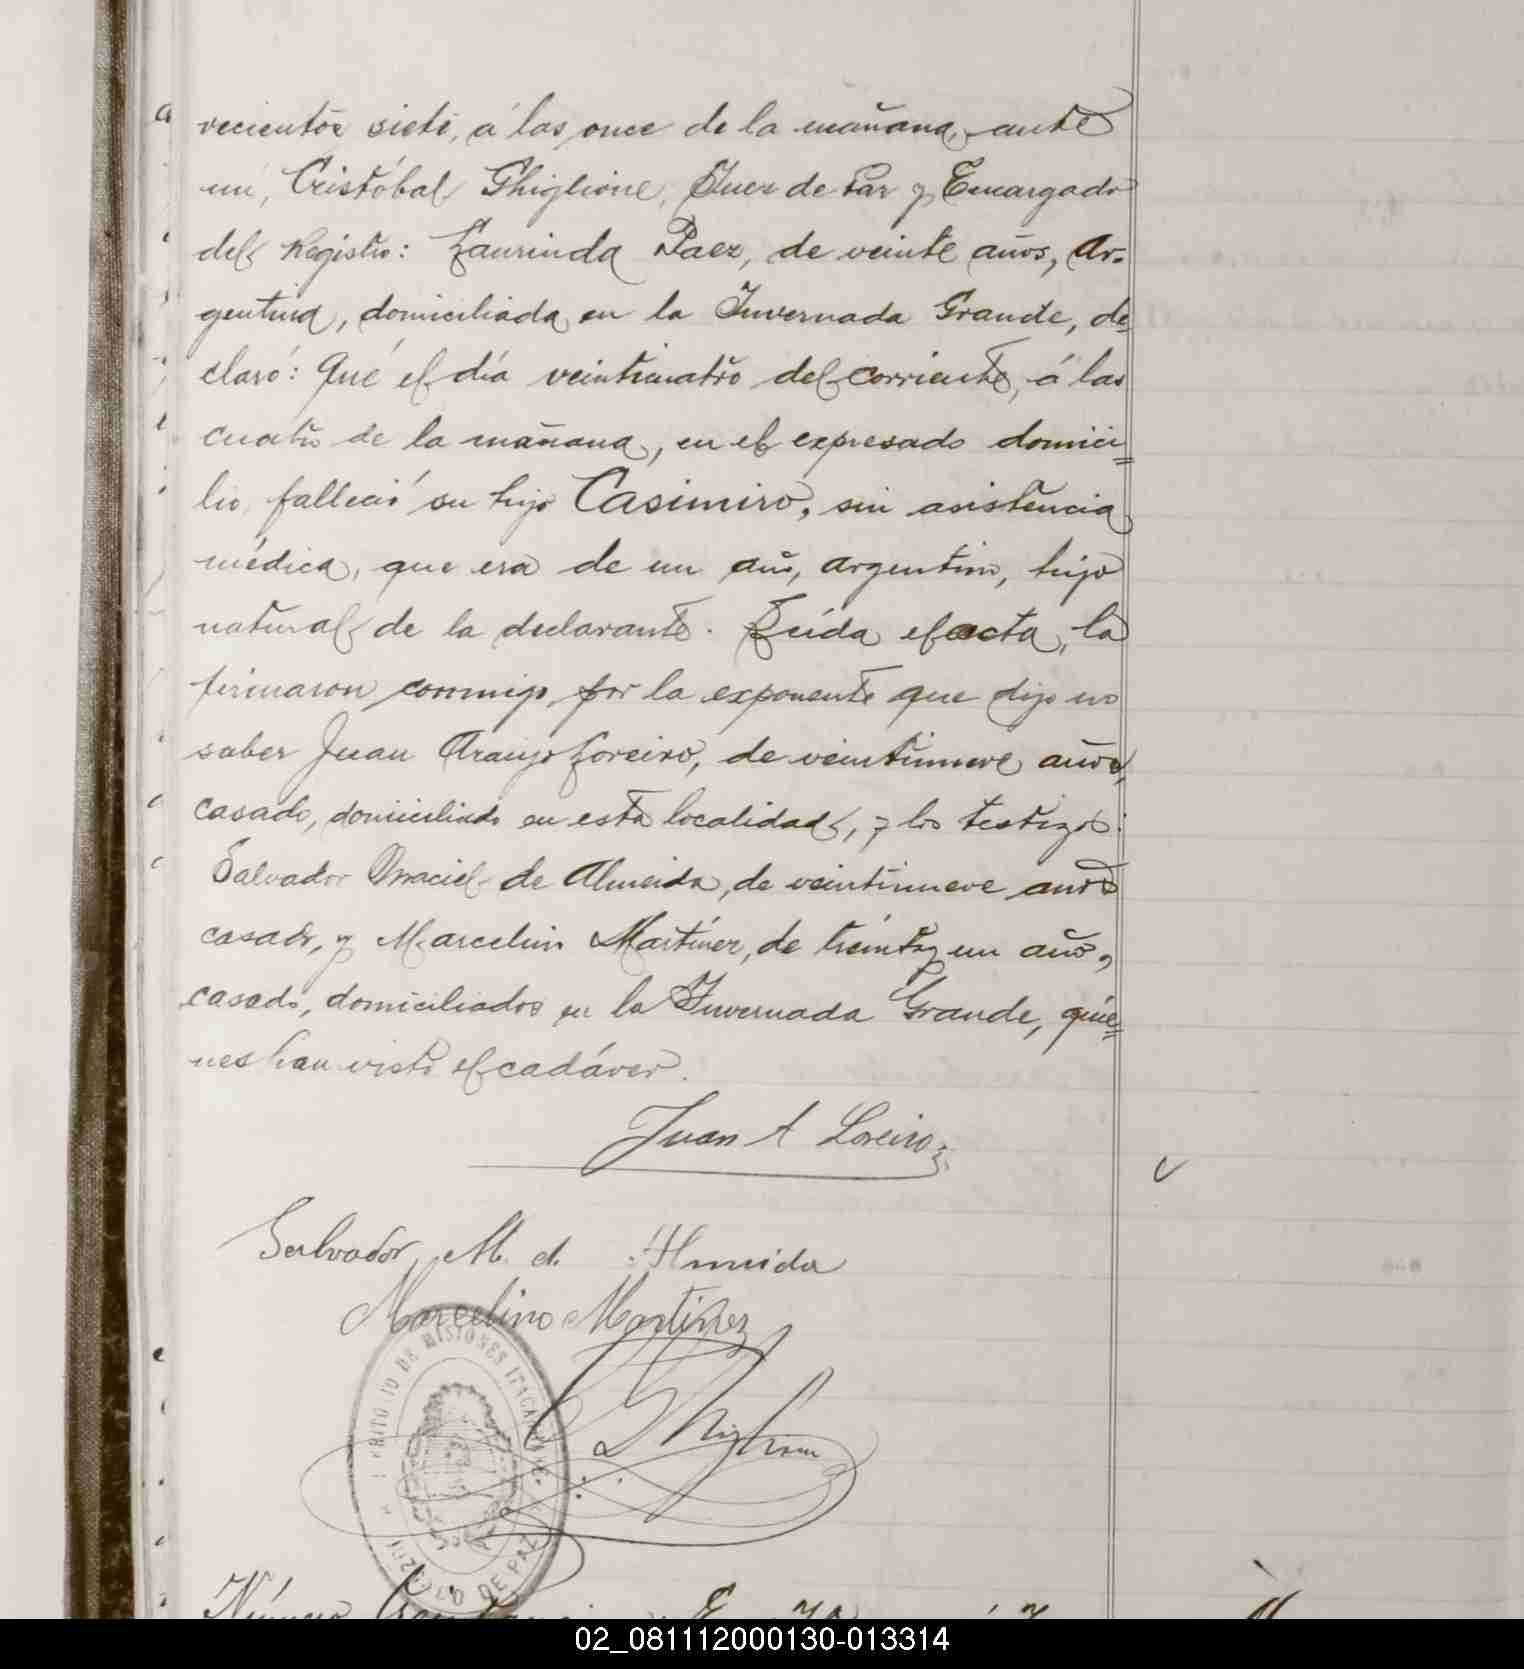 vecientos siete, á las once de la mañana, ante
mí, Cristóbal Ghiglione, Juez de Paz y Encargado
del Registro: Laurinda Paez, de veinte años, Ar-
gentina, domiciliada en la Invernada Grande, de
claró: Que el día veinticuatro del corriente, á las
cuatro de la mañana, en el expresado domici=
lio, falleció su hijo Casimiro, sin asistencia
médica, que era de un año, argentino, hijo
natural de la declarante. Leída el acta, la
firmaron conmigo, por la exponente que dijo no
saber Juan Araujo Loreiro, de veintinueve años,
casado, domiciliado en esta localidad, y los testigos:
Salvador Maciel de Almeida, de veintinueve años
casado, y Marcelino Martínez, de treinta y un año,
casado, domiciliados en la Invernada Grande, quie=
nes han visto el cadáver.
Juan A Loreiro
Salvador M. d. Almeida
Marcelino Martinez
C Ghiglione
TERRITORIO DE MISIONES
JUZGADO DE PAZ
Número
02_081112000130-013314